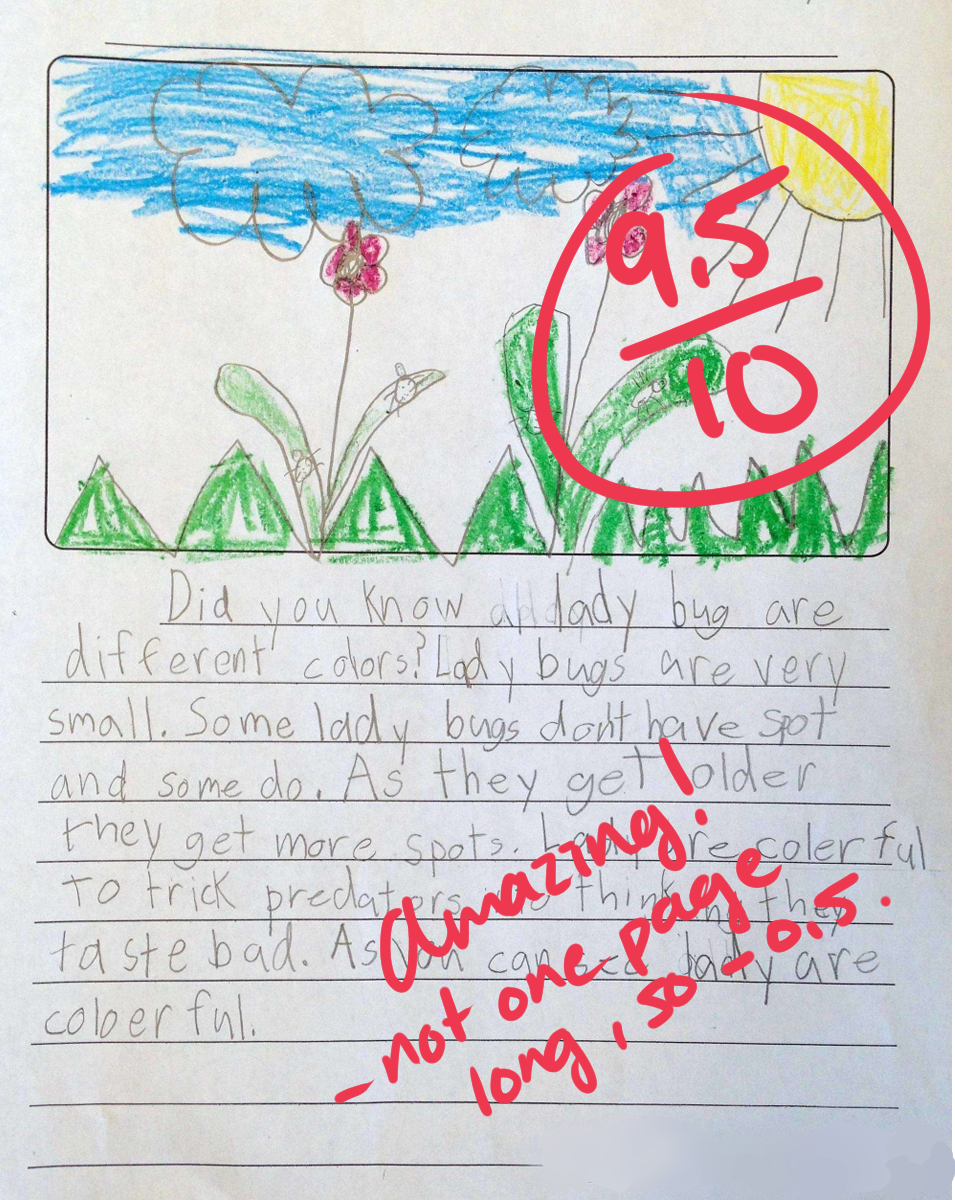 9.5
10
Did you know lady bug are
different colors? Lady bugs are very
small. Some lady bugs don't have spot
and some do. As they get older
they get more spots. Lady are colerful
To trick predators into thinking they
taste bad. As you can see lady are
coloerful.
Amazing!
- not one page
long, so - 0.5.